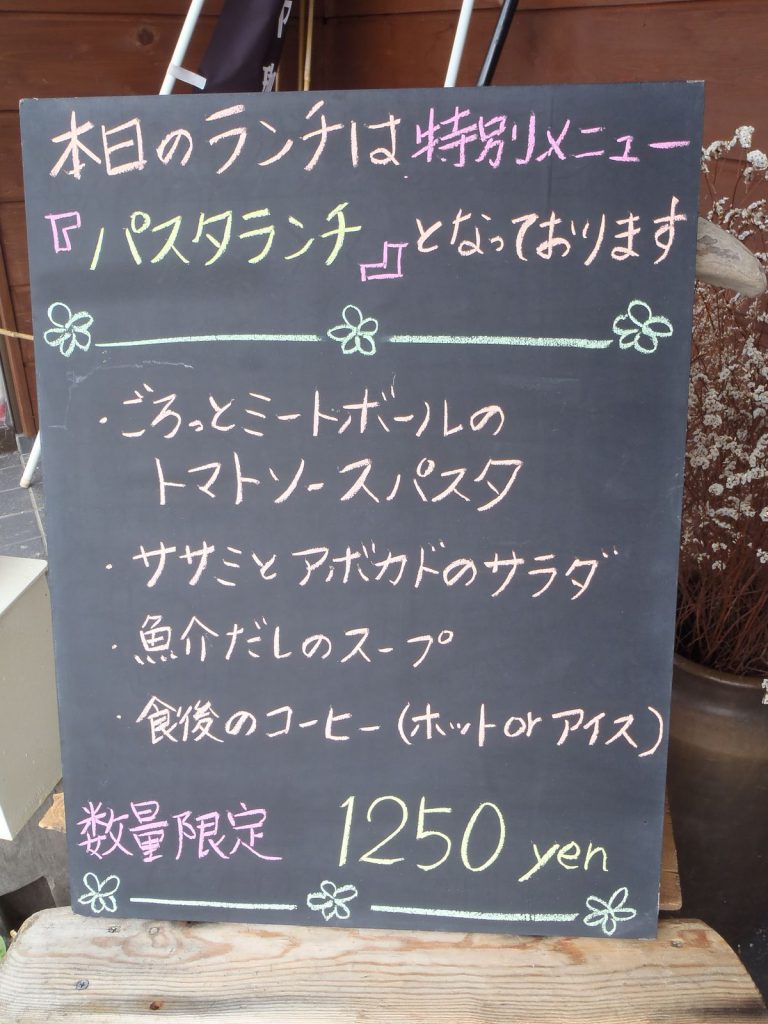 本日のランチは特別メニュー
『パスタランチ』となっております
・ごろっとミートボールの
トマトソースパスタ
・ササミとアボカドのサラダ
・魚介だしのスープ
・食後のコーヒー(ホットorアイス)
数量限定 1250 yen